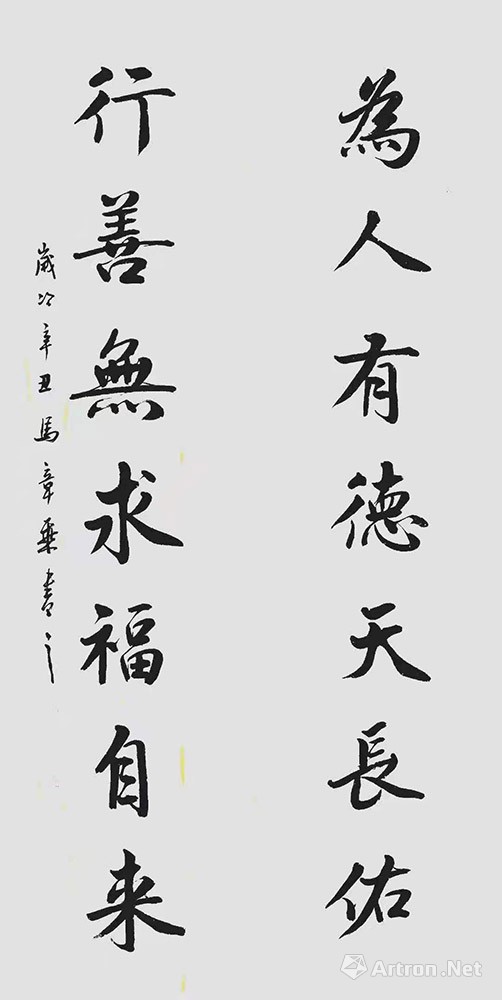 為人有德天長佑
行善無求福自来
歲次辛丑馬章乘書之
Artron.Net